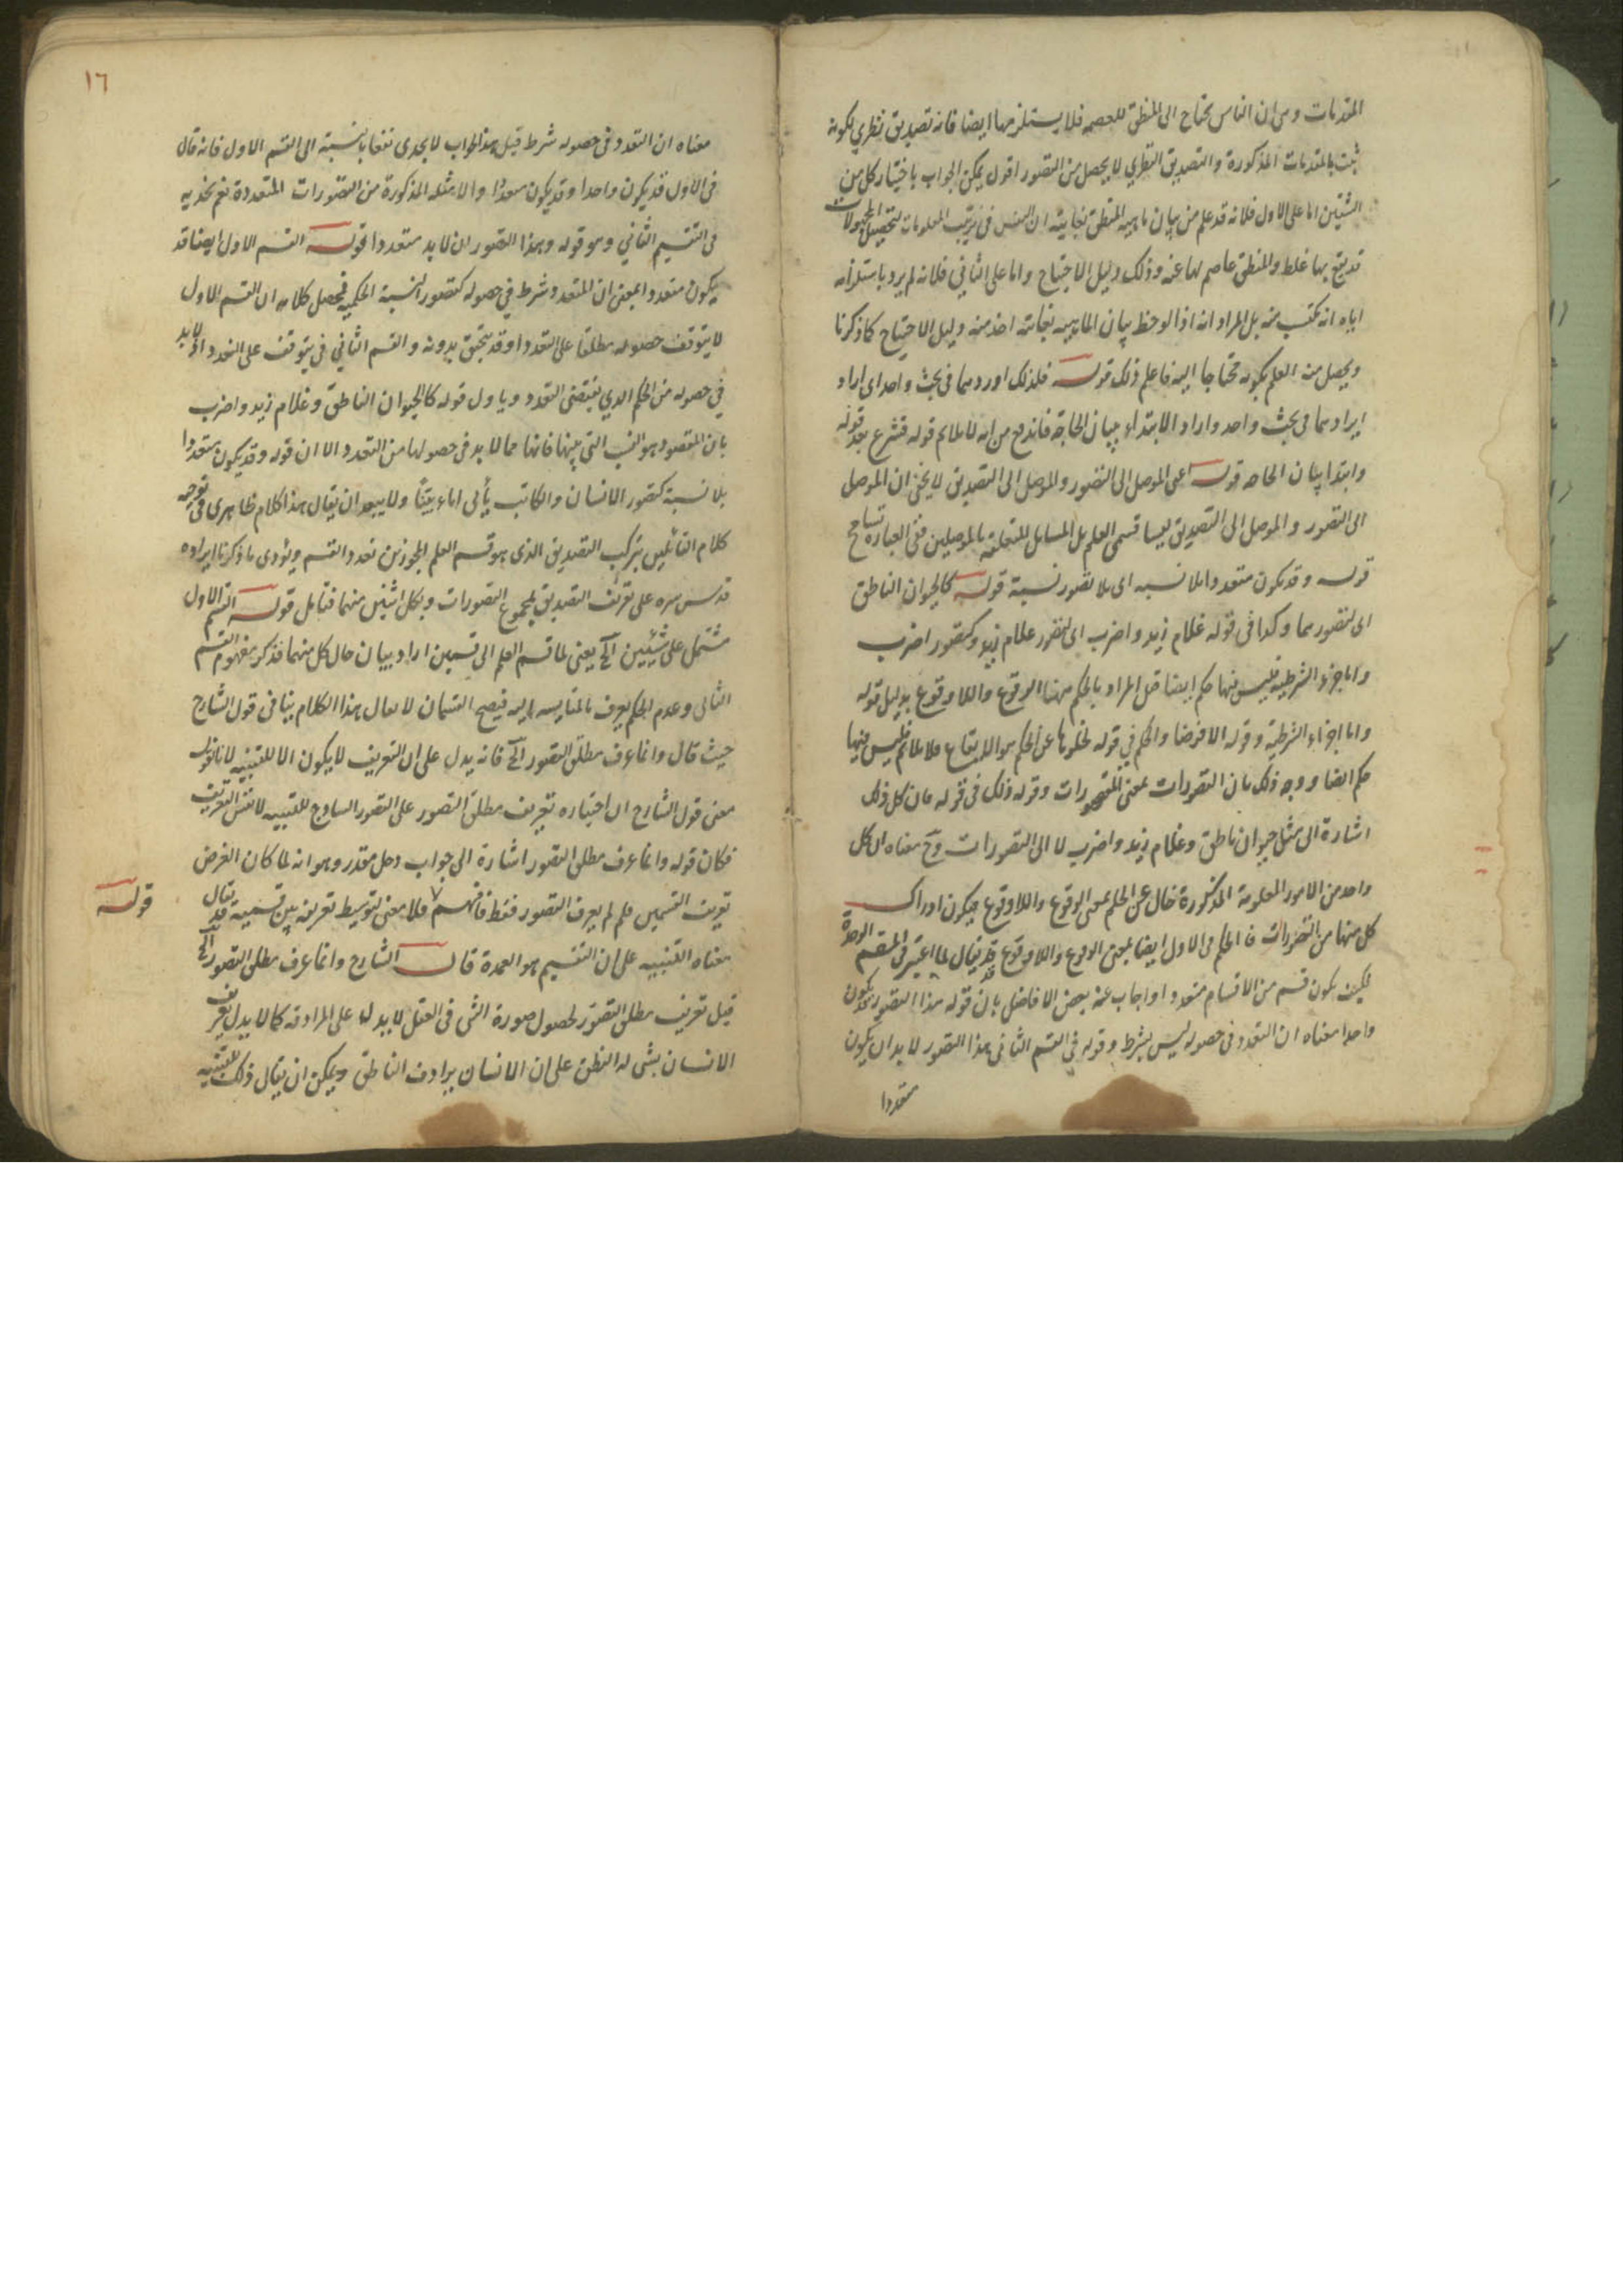 المقدمات وهي ان الناس يحتاج الى المنطق للعصمة فلا يستلزمها ايضا فانه تصديق نظري لكونه
ثبت بالمقدمات المذكورة والتصديق النظري لا يحصل من التصور اقول يمكن الجواب باختيار كل من
الشقين اما على الاول فلانه قد علم من بيان ماهية المنطق بغايته ان النفس في ترتيب المعلومات لتحصيل المجهولات
قد يقع بها غلط والمنطق عاصم لها عنه وذلك دليل الاحتياج واما على الثاني فلانه لم يرد باستلزامه
اياه انه يكتسب منه بل المراد انه اذا لوحظ بيان الماهية بغايته اخذ منه دليل الاحتياج كما ذكرنا
ويحصل من العلم بكونه محتاجا اليه فاعلم ذلك قوله فلذلك اوردهما في بحث واحد اي اراد
ايرادهما في بحث واحد واراد الابتداء ببيان الحاجة فاندفع من انه لا يلائم قوله فشرع بعد قوله
وابتدأ ببيان الحاجة قوله اعني الموصل الى التصور والموصل الى التصديق لا يخفى ان الموصل
الى التصور والموصل الى التصديق ليسا قسمي العلم بل المسايل المتعلقة بالموصلين ففي العبارة تسامح
قوله وقد يكون متعددا بلا نسبة اي بلا تصور نسبة قوله كالحيوان الناطق
اي كتصورهما وكذا في قوله غلام زيد واضرب اي كتصور غلام زيد وكتصور اضرب
واما جزء الشرطية فليس فيها حكم ايضا قيل المراد بالحكم ههنا الوقوع واللاوقوع بدليل قوله
واما اجزاء الشرطية وقوله الا فرضا والحكم في قوله لخلوها عن الحكم هو الايقاع فلا يلائم فليس فيها
حكم ايضا ووجه ذلك بان التصورات بمعنى المتصورات وقوله ذلك في قوله فان كل ذلك
اشارة الى مثل حيوان ناطق وغلام زيد واضرب لا الى التصورات وح معناه ان كل
واحد من الامور المعلومة المذكورة خال عن الحكم بمعنى الوقوع واللاوقوع فيكون ادراك
كل منها من التصورات فالحكم في الاول ايضا بمعنى الوقوع واللاوقوع قد يقال لما اعتبر في المقسم الوحدة
فكيف يكون قسم من الاقسام متعددا واجاب عنه بعض الافاضل بان قوله هذا التصور قد يكون
واحدا معناه ان التعدد في حصوله ليس بشرط وقوله في القسم الثاني هذا التصور لا بد ان يكون
متعددا
١٦
معناه ان التعدد في حصوله شرط قيل هذا الجواب لا يجدي نفعا بالنسبة الى القسم الاول فانه قال
في الاول قد يكون واحدا وقد يكون متعددا والامثلة المذكورة من التصورات المتعددة نعم يجديه
في التقسيم الثاني وهو قوله وهذا التصور ان لا بد متعددا قوله القسم الاول ايضا قد
يكون متعددا بمعنى ان المتعدد شرط في حصوله كتصور النسبة الحكمية فحصل كلامه ان القسم الاول
لا يتوقف حصوله مطلقا على التعدد اذ قد يتحقق بدونه والقسم الثاني في يتوقف على التعدد اذ لا بد
في حصوله من الحكم الذي يقتضي التعدد ويأول قوله كالحيوان الناطق وغلام زيد واضرب
بان المقصود هو النسب التي بينها فانها مما لا بد في حصولها من التعدد الا ان قوله وقد يكون متعددا
بلا نسبة كتصور الانسان والكاتب يأبى اباء بيّنا ولا يبعد ان يقال هذا كلام ظاهري في توجيه
كلام القائلين بتركب التصديق الذي هو قسم العلم المجوزين تعدد القسم ويؤدي ما ذكرنا ايراده
قدس سره على تعريف التصديق بمجموع التصورات وبكل اثنين منها فتأمل قوله القسم الاول
مشتمل على شيئين الخ يعني لما قسم العلم الى قسمين اراد بيان حال كل منهما فذكر مفهوم القسم
الثاني وعدم الحكم يعرف بالمقايسة اليه فيصح القسمان لا يقال هذا الكلام ينافي قول الشارح
حيث قال وانما عرف مطلق التصور الخ فانه يدل على ان التعريف لا يكون الا للتنبيه لانا نقول
معنى قول الشارح ان اختياره تعريف مطلق التصور على التصور الساذج للتنبيه لا نفس التعريف
فكان قوله وانما عرف مطلق التصور اشارة الى جواب دخل مقدر وهو انه لما كان الغرض
تعريف القسمين فلم لم يعرف التصور فقط فافهم فلا معنى لتوسيط تعريفه بين قسميه قد يقال
معناه التنبيه على ان التقسيم هو العمدة قال الشارح وانما عرف مطلق التصور الخ
قيل تعريف مطلق التصور لحصول صورة الشي في العقل لا يدل على المرادفة كما لا يدل تعريف
الانسان بشي له النطق على ان الانسان يرادف الناطق ويمكن ان يقال ذلك للتنبيه
قوله